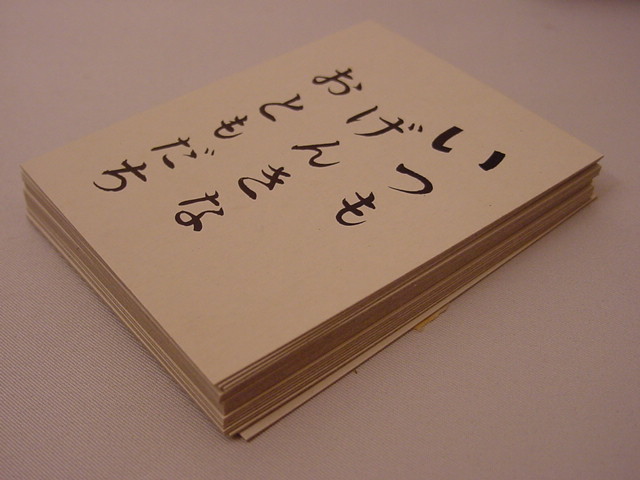 いつも
げんきな
おともだち